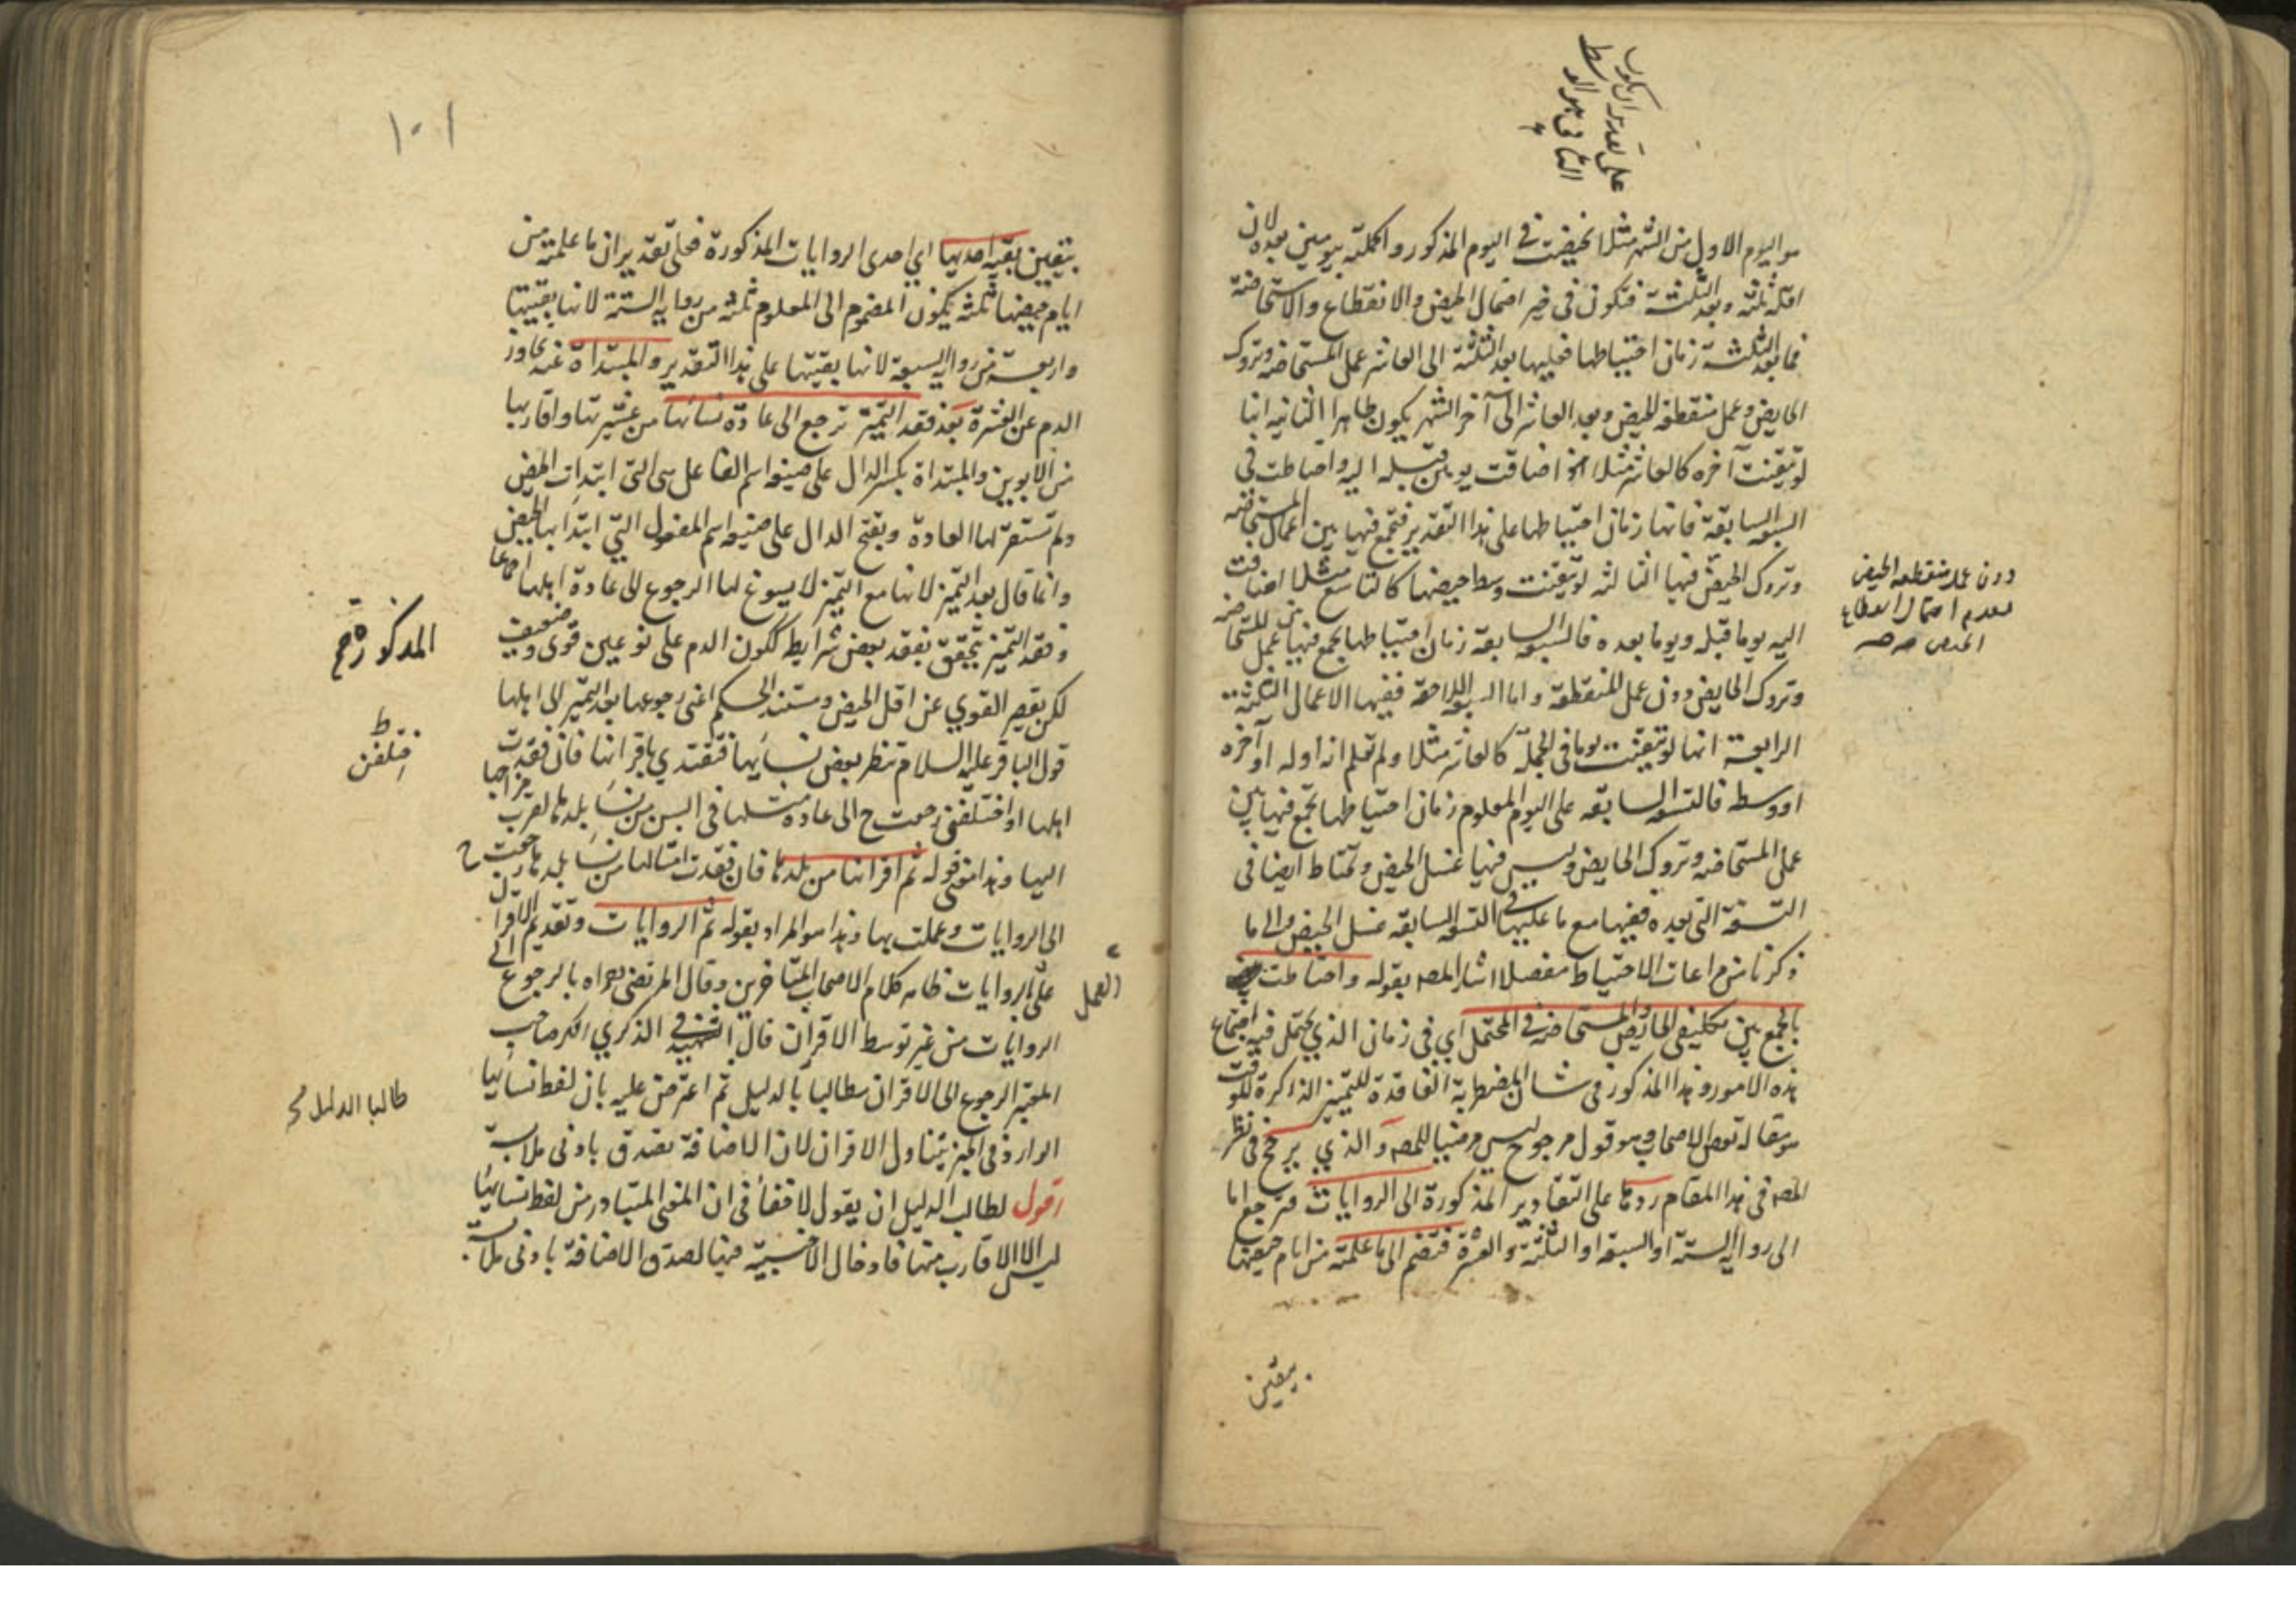 هو اليوم الاول من الشهر مثلا تحيضت في اليوم المذكور واكملته بيومين بعده لان
اقله ثلثة وبعد الثلثة فتكون في خير احتمال الحيض والانقطاع والاستحاضة
فما بعد الثلثة زمان احتياطها فعليها بعد الثلثة الى العاشر عمل المستحاضه وتروك
الحايض وعمل منقطعه الحيض وبعد العاشر الى آخر الشهر يكون طاهرا الثانيه انها
لو تيقنت آخره كالعاشر مثلا اضافت يومين قبله اليه واحتاطت في
السبعه السابقة فانها زمان احتياطها على هذا التقدير فتجمع فيها بين اعمال المستحاضه
وتروك الحيض فيها الثالثه لو تيقنت وسط حيضها كالتاسع مثلا اضافت
اليه يوما قبله ويوما بعده فالسبعه السابقة زمان احتياطها يجمع فيها بين عمل المستحاضه
وتروك الحايض دون عمل المنقطعة واما السبعه اللاحقة ففيها الاعمال الثلثة
الرابعة انها لو تيقنت يوما في الجملة كالعاشر مثلا ولم تعلم انه اوله او آخره
او وسطه فالتسعه السابقه على اليوم المعلوم زمان احتياطها تجمع فيها بين
عمل المستحاضه وتروك الحايض وليس فيها غسل الحيض وتحتاط ايضا في
التسعة التي بعده ففيها مع ما عليها في التسعه السابقه غسل الحيض والى ما
ذكرنا من مراعات الاحتياط مفصلا اشار المصه بقوله واحتاطت
بالجمع بين تكليفي الحائض والمستحاضه في المحتمل اي في زمان الذي يحتمل فيه اجتماع
هذه الامور وهذا المذكور في شان المضطربة الفاقدة للتميز الذاكرة للوقت
هو مقاله بعض الاصحاب وهو قول مرجوح ليس مرضيا للمصه والذي يرجح في نظر
المصه في هذا المقام ردها على التقادير المذكورة الى الروايات فترجع اما
الى رواية الستة او السبعة او الثلثة والعشرة فتضم الى ما علمته من ايام حيضها
بتعين
على تقدير ان يكون
الثاني هو الوسط
دون عمل منقطعه الحيض
لعدم احتمال انقطاع
الحيض
١٠١
بتعين بقية احديها اي احدى الروايات المذكورة فعلى تقدير ان ما علمته من
ايام حيضها ثلثة يكون المضموم الى المعلوم ثلثة من رواية الستة لانها بقيتها
واربعة من رواية السبعة لانها بقيتها على هذا التقدير والمبتداة عند تجاوز
الدم عن العشرة بعد فقد التميز ترجع الى عادة نسائها من عشيرتها واقاربها
من الابوين والمبتداة بكسر الدال على صيغه اسم الفاعل هي التي ابتدات الحيض
ولم تستقر لها العادة وبفتح الدال على صيغه اسم المفعول التي ابتدا بها الحيض
وانما قال بعد التميز لانها مع التميز لا يسوغ لها الرجوع الى عادة اهلها اجماعا
وفقد التميز يتحقق بفقد بعض شرايط ككون الدم على نوعين قوى وضعيف
لكن يقصر القوي عن اقل الحيض ومستند الحكم اعني رجوعها بعد التميز الى اهلها
قول الباقر عليه السلام تنظر بعض نسايها فتقتدي باقرائها فان فقدت
اهلها او اختلفن رجعت ح الى عادة مثلها في السن من نساء بلدها لقرب مزاجها
اليها وهذا معنى قوله ثم اقرانها من بلدها فان فقدت امثالها من نساء بلدها رجعت ح
الى الروايات وعملت بها وهذا هو المراد بقوله ثم الروايات وتقديم الاقران
على الروايات ظاهر كلام الاصحاب المتاخرين وقال المرتضى بالرجوع الى
الروايات من غير توسط الاقران قال الشهيد في الذكري انكر صاحب
المعتبر الرجوع الى الاقران مطالبا بالدليل ثم اعترض عليه بان لفظ نسائها
الوارد في الخبر يتناول الاقران لان الاضافة تصدق بادنى ملابسة
اقول لطالب الدليل ان يقول لا خفاء في ان المعنى المتبادر من لفظ نسائها
ليس الا الاقارب منها فادخال الاجنبية فيها لصدق الاضافة بادنى ملابسة
المذكورة صح
اختلفن
العمل
طالبا الدليل